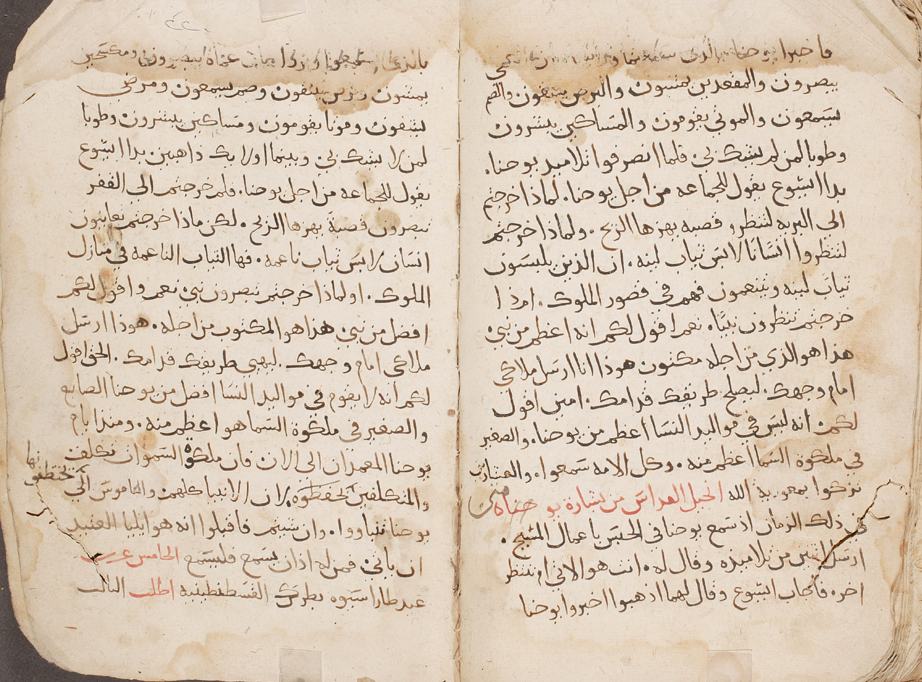 فاخبرا يوحنا بالذي
يبصرون والمقعدين يمشون والبرص ينقون والصم
يسمعون والموتي يقومون والمساكين يبشرون
وطوبا لمن لم يشك بي فلما انصرفوا تلاميد يوحنا
بدا ايسوع يقول للجماعه من اجل يوحنا. لماذا خرجتم
الى البريه لتنظرو قصبه تهزها الريح. ولماذا خرجتم
لتنظروا انسانا لابس تياب لينه. ان الذين يلبسون
تياب لينه ويتنعمون فهم في قصور الملوك. امر ا
خرجتم تنظرون نبيا. نعم اقول لكم انه اعظم من نبي
هذا هو الذي من اجله مكتوب هوذا انا ارسل ملاكي
امام وجهك ليصلح طريقك قدامك. امين اقول
لكم. انه ليس في مواليد النسا اعظم من يوحنا. والصغير
في ملكوة السما اعظم منه. وكل الامه سمعوا. والعشارين
تزكوا بمعموديه الله انجيل القداس من بشارة
في ذلك الزمان اذ سمع يوحنا في الحبس باعمال المسيح.
ارسل اتنين من تلاميده وقال له. انت هو الاتي ام ننتظر
اخر. فاجاب ايسوع وقال لهما اذهبوا اخبروا يوحنا
عماه يبصرون ومكسحين
يمشون وبرص ينقون وصم يسمعون ومرضي
يشفون وموتا يقومون ومساكين يبشرون وطوبا
لمن لا يشك بي وبينما اولايك ذاهبين بدا ايسوع
يقول للجماعه من اجل يوحنا. فلم خرجتم الى القفر
تبصرون قصبة تهزها الريح. لكن ماذا خرجتم تعاينون
انسان لابس تياب ناعمه. فها التياب الناعمه في منازل
الملوك. او لماذا خرجتم تبصرون نبي نعم واقول لكم
افضل من نبي هذا هو المكتوب من اجله. هوذا ارسل
ملاكي امام وجهك. ليهي طريقك قدامك. الحق اقول
لكم انه لا يقوم في مواليد النسا افضل من يوحنا الصابغ
والصغير في ملكوة السما هو اعظم منه. ومند ايام
يوحنا المعمدان الى الان فان ملكوة السموات تكلف
والمتكلفين لان الانبيا كلهم والناموس الى
يوحنا تنباووا. وان شيتم فاقبلوا انه هو ايليا العتيد
ان ياتي. فمن له ادان يسمع فليسمع الخامس عريس
القسطنطينية اطلب التالت